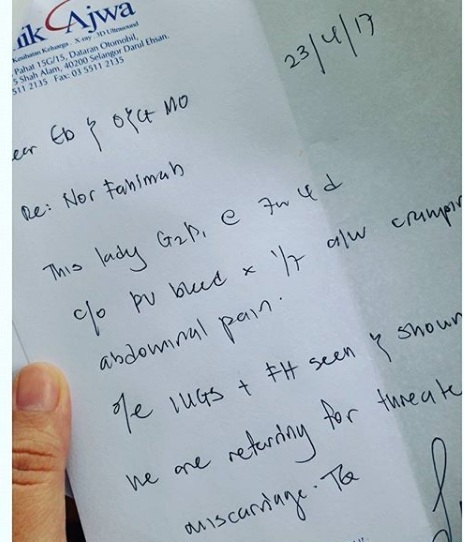 ik Ajwa
Kesihatan Keluarga . X-ray . 3D Ultrasound
Pahat 15G/15, Dataran Otomobil,
5 Shah Alam, 40200 Selangor Darul Ehsan.
511 2135 Fax: 03 5511 2135
23/4/17
ear ED & O&G MO
Re: Nor Fahimah
This lady G2P1 @ 7w 4d
c/o PV bleed x 1/7 a/w crampin
abdominal pain.
o/e IUGS + FH seen & shown
We are referring for threate
miscarriage. TQ